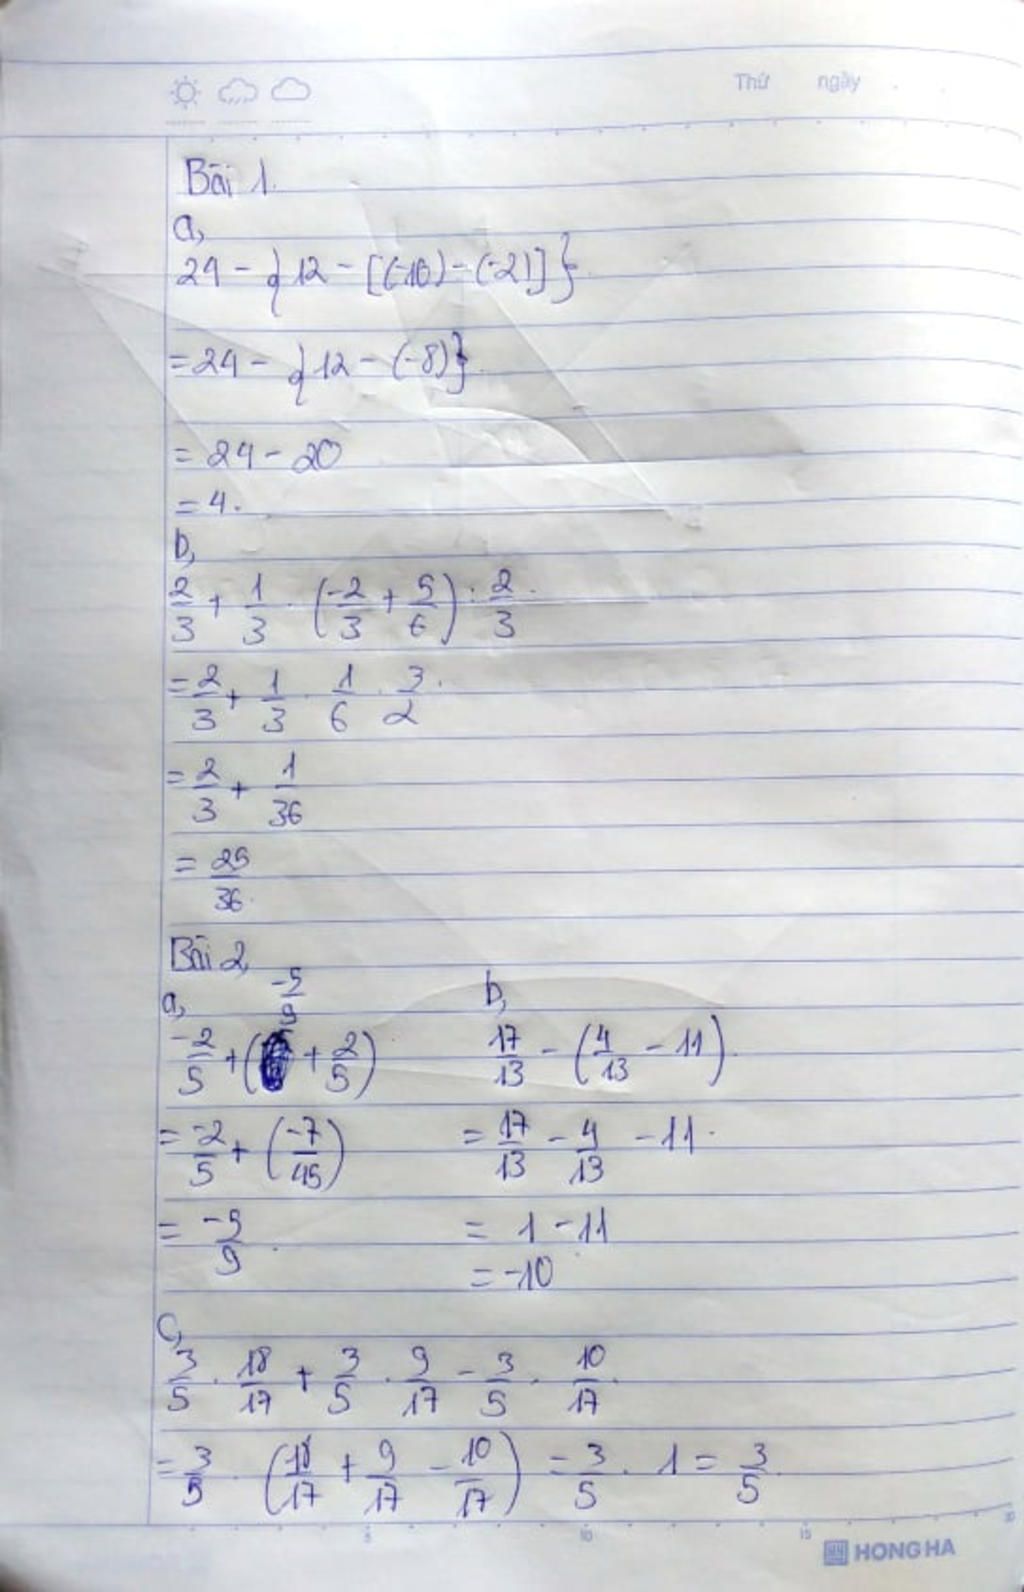 Thứ ngày
Bài 1.
a,
24 - { 12 - [(-10) - (-2)] }
= 24 - { 12 - (-8) }
= 24 - 20
= 4.
b,
2/3 + 1/3 . (-2/3 + 5/6) : 2/3.
= 2/3 + 1/3 . 1/6 . 3/2.
= 2/3 + 1/36
= 25/36.
Bài 2,
a,
-2/5 + (-5/9 + 2/5)
= -2/5 + (-7/45)
= -5/9.
b,
17/13 - (4/13 - 11).
= 17/13 - 4/13 - 11.
= 1 - 11
= -10
c,
3/5 . 18/17 + 3/5 . 9/17 - 3/5 . 10/17.
= 3/5 . (18/17 + 9/17 - 10/17) = 3/5 . 1 = 3/5.
5 10 15
HONG HA